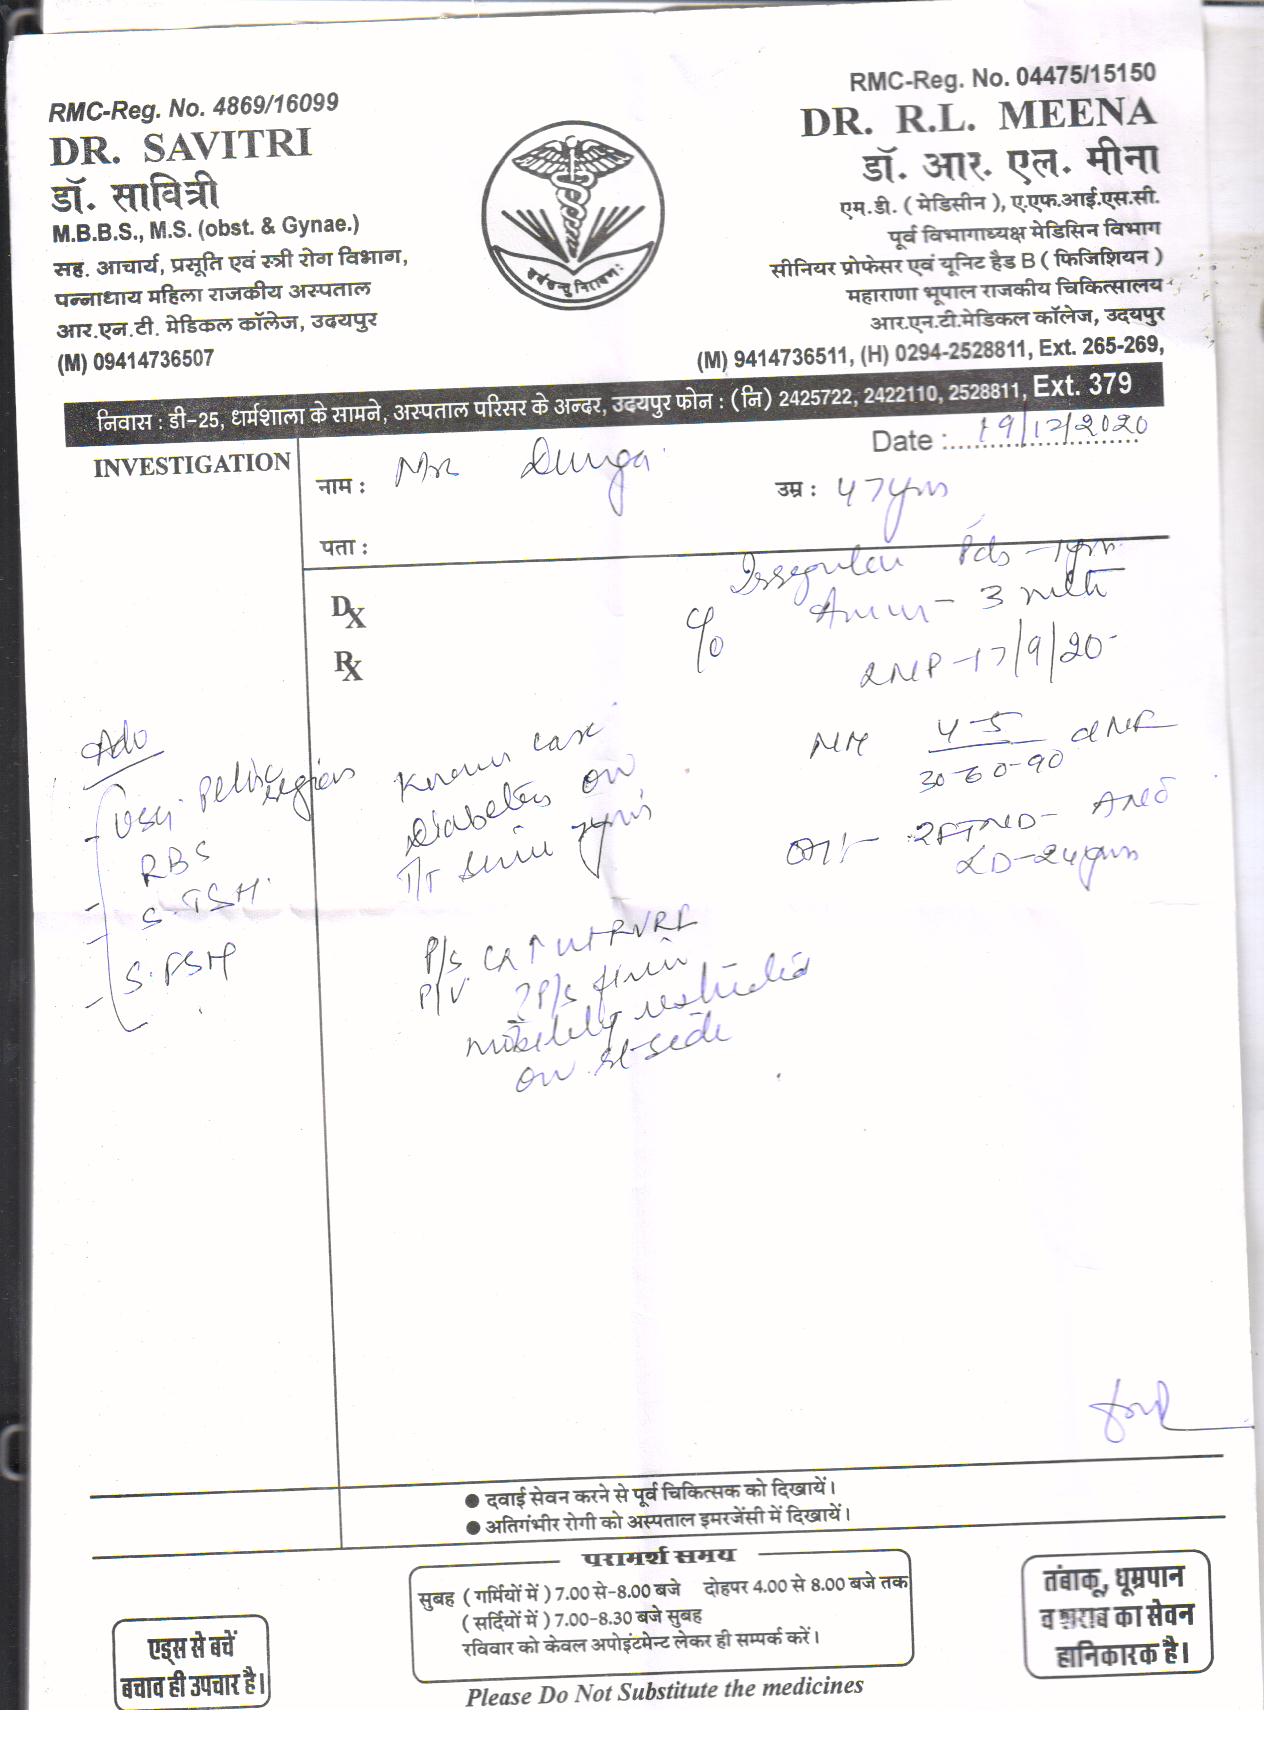 RMC-Reg. No. 4869/16099
DR. SAVITRI
डॉ. सावित्री
M.B.B.S., M.S. (obst. & Gynae.)
सह. आचार्य, प्रसूति एवं स्त्री रोग विभाग,
पन्नाधाय महिला राजकीय अस्पताल
आर.एन.टी. मेडिकल कॉलेज, उदयपुर
(M) 09414736507
सर्वेसन्तु निरामयाः
RMC-Reg. No. 04475/15150
DR. R.L. MEENA
डॉ. आर. एल. मीना
एम.डी. ( मेडिसीन ), ए.एफ.आई.एस.सी.
पूर्व विभागाध्यक्ष मेडिसिन विभाग
सीनियर प्रोफेसर एवं यूनिट हैड B ( फिजिशियन )
महाराणा भूपाल राजकीय चिकित्सालय
आर.एन.टी.मेडिकल कॉलेज, उदयपुर
(M) 9414736511, (H) 0294-2528811, Ext. 265-269,
निवास : डी-25, धर्मशाला के सामने, अस्पताल परिसर के अन्दर, उदयपुर फोन : (नि) 2425722, 2422110, 2528811, Ext. 379
Date : 19/12/2020
INVESTIGATION
नाम : Durga
उम्र : 47 yrs
पता :
DX
RX
Irregular Pds - 1 yr
c/o - 3 mth
LMP - 17/9/20
MH 4-5
30-60-90
2FTND -
LD - 24 yrs
Adv
USG. Pelvic region
RBS
S. TSH
S. FSH
Known case
Diabetes on
T/T since 7 yrs
P/S
P/V ? P/S firm
mobility restricted
on side
● दवाई सेवन करने से पूर्व चिकित्सक को दिखायें।
● अतिगंभीर रोगी को अस्पताल इमरजेंसी में दिखायें।
परामर्श समय
सुबह ( गर्मियों में ) 7.00 से-8.00 बजे दोहपर 4.00 से 8.00 बजे तक
( सर्दियों में ) 7.00-8.30 बजे सुबह
रविवार को केवल अपोइंटमेन्ट लेकर ही सम्पर्क करें।
एड्स से बचें
बचाव ही उपचार है।
तंबाकू, धूम्रपान
व शराब का सेवन
हानिकारक है।
Please Do Not Substitute the medicines